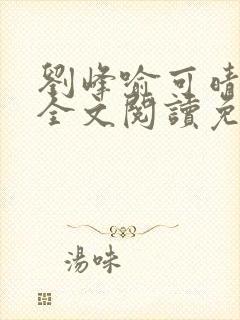 劉峰喻可晴
全文閱讀免
湯味